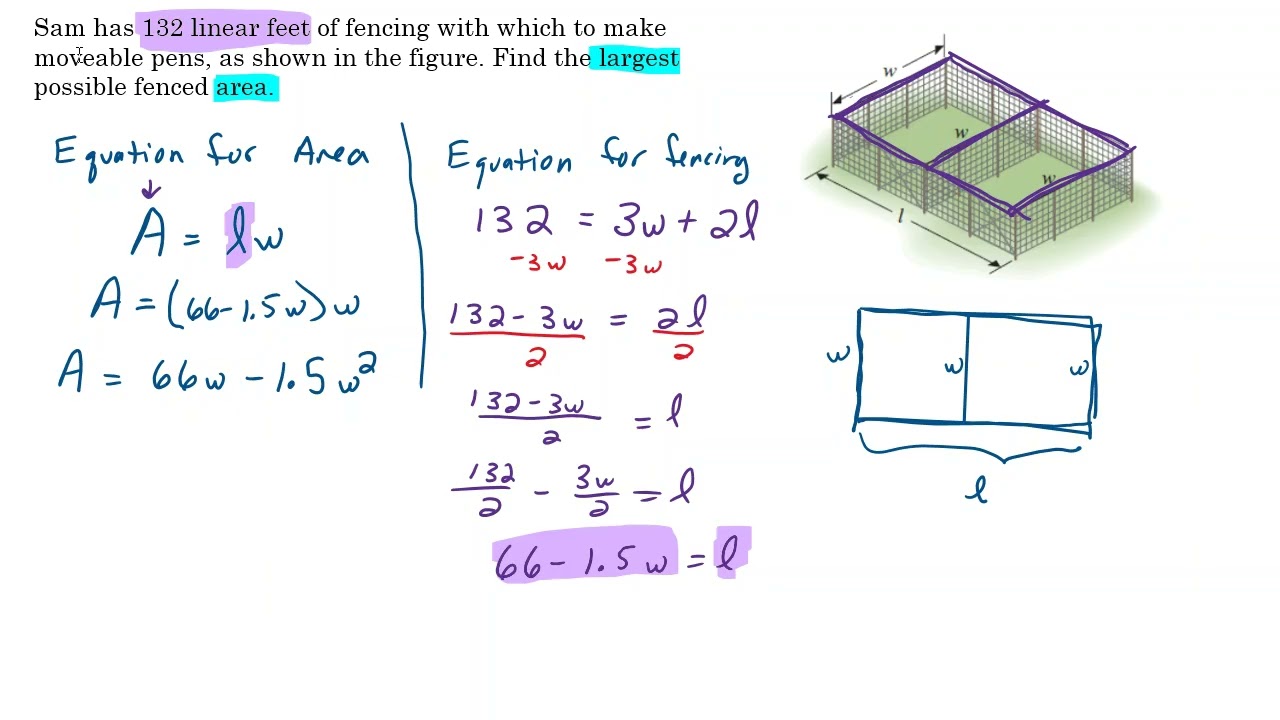 Sam has 132 linear feet of fencing with which to make
moveable pens, as shown in the figure. Find the largest
possible fenced area.
Equation for Area
A = lw
A = (66-1.5w)w
A = 66w - 1.5w²
Equation for fencing
132 = 3w + 2l
-3w -3w
132 - 3w = 2l
2 2
132 - 3w = l
2
132 - 3w = l
2 2
66 - 1.5w = l
w
w
w
l
w w w
l